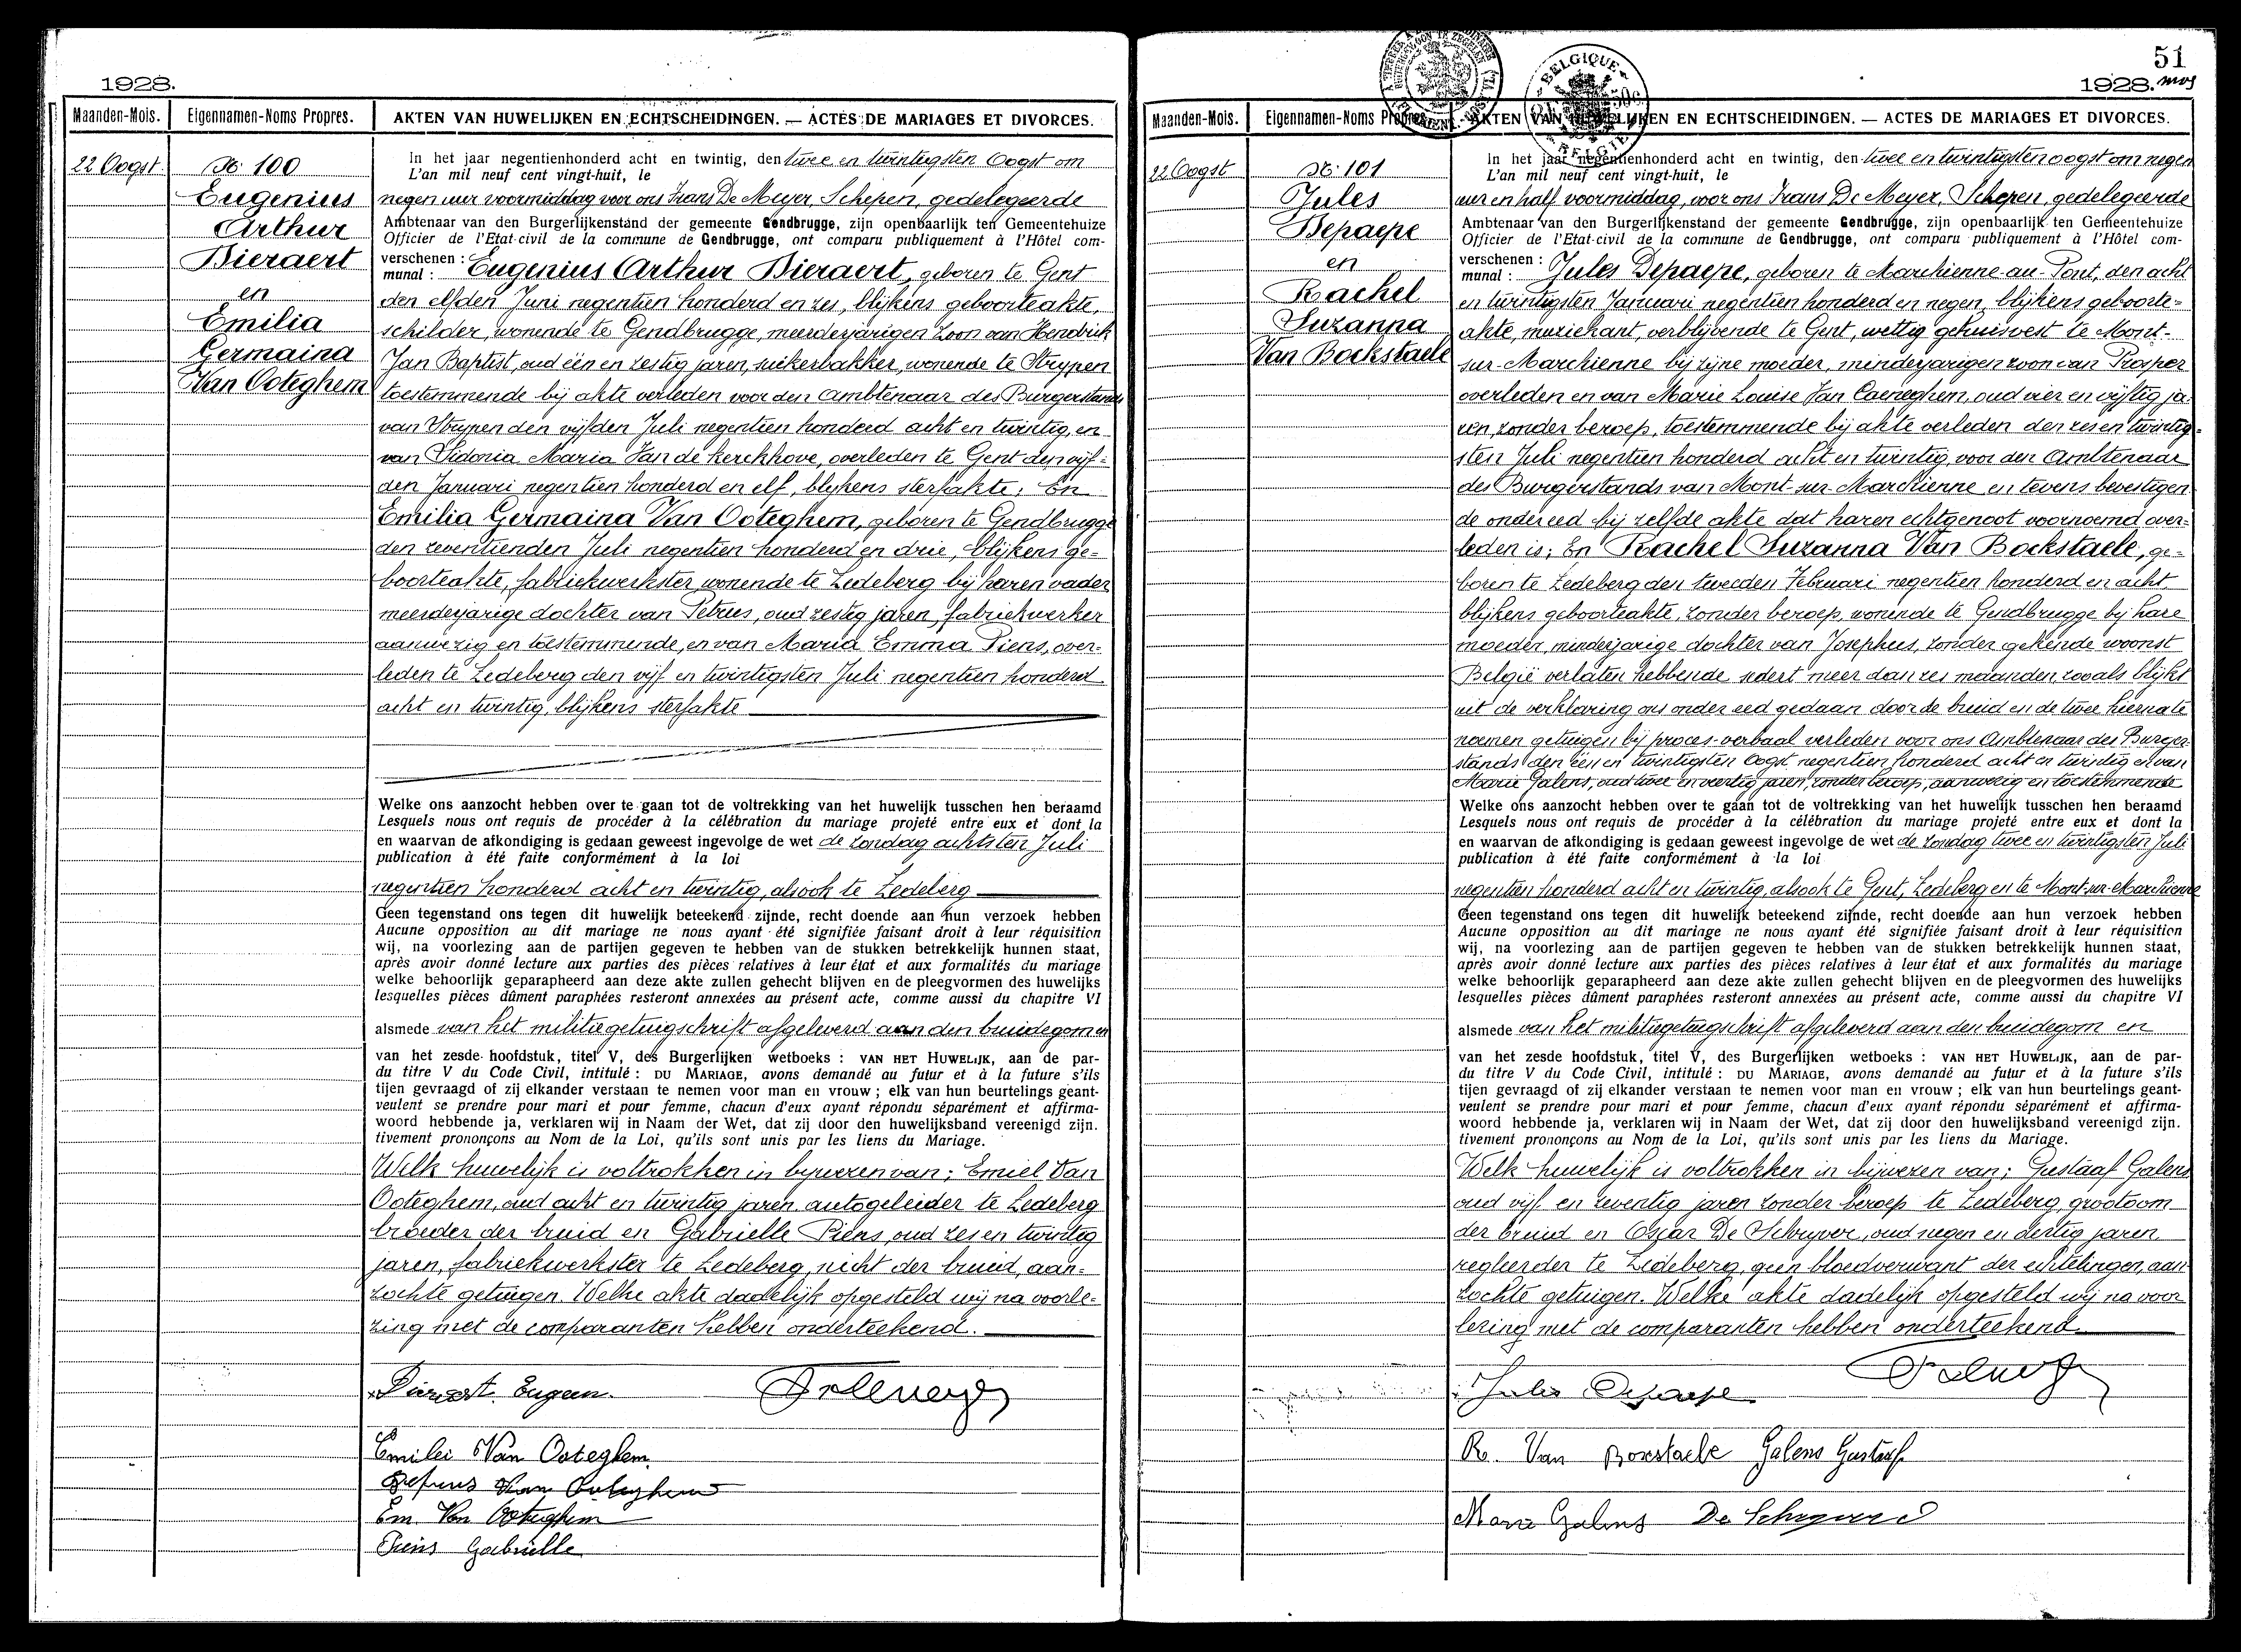 1928.
Maanden-Mois.
Eigennamen-Noms Propres.
AKTEN VAN HUWELIJKEN EN ECHTSCHEIDINGEN. — ACTES DE MARIAGES ET DIVORCES.
22 Oogst
No 100
Eugenius
Arthur
Dieraert
en
Emilia
Germaina
Van Ooteghem
In het jaar negentienhonderd acht en twintig, den twee en twintigsten Oogst om
L'an mil neuf cent vingt-huit, le
negen uur voormiddag voor ons Frans De Meyer, Schepen, gedelegeerde
Ambtenaar van den Burgerlijkenstand der gemeente Gendbrugge, zijn openbaarlijk ten Gemeentehuize
Officier de l'Etat-civil de la commune de Gendbrugge, ont comparu publiquement à l'Hôtel com-
verschenen : Eugenius Arthur Dieraert, geboren te Gent
munal :
den elfden Juni negentien honderd en zes, blijkens geboorteakte,
schilder, wonende te Gendbrugge, meerderjarigen zoon van Hendrik
Jan Baptist, oud een en zestig jaren, suikerbakker, wonende te Strypen
toestemmende bij akte verleden voor den Ambtenaar des Burgerstands
van Strypen den vijfden Juli negentien honderd acht en twintig, en
van Sidonia Maria Van de Kerckhove, overleden te Gent den vijf-
den Januari negentien honderd en elf, blijkens sterfakte; En
Emilia Germaina Van Ooteghem, geboren te Gendbrugge
den zeventienden Juli negentien honderd en drie, blijkens ge-
boorteakte, fabriekwerkster, wonende te Ledeberg bij haren vader
meerderjarige dochter van Petrus, oud zestig jaren, fabriekwerker
aanwezig en toestemmende, en van Maria Emma Piens, over-
leden te Ledeberg den vijf en twintigsten Juli negentien honderd
acht en twintig, blijkens sterfakte
Welke ons aanzocht hebben over te gaan tot de voltrekking van het huwelijk tusschen hen beraamd
Lesquels nous ont requis de procéder à la célébration du mariage projeté entre eux et dont la
en waarvan de afkondiging is gedaan geweest ingevolge de wet de zondag achtsten Juli
publication à été faite conformément à la loi
negentien honderd acht en twintig, alsook te Ledeberg
Geen tegenstand ons tegen dit huwelijk beteekend zijnde, recht doende aan hun verzoek hebben
Aucune opposition au dit mariage ne nous ayant été signifiée faisant droit à leur réquisition
wij, na voorlezing aan de partijen gegeven te hebben van de stukken betrekkelijk hunnen staat,
après avoir donné lecture aux parties des pièces relatives à leur état et aux formalités du mariage
welke behoorlijk geparapheerd aan deze akte zullen gehecht blijven en de pleegvormen des huwelijks
lesquelles pièces dûment paraphées resteront annexées au présent acte, comme aussi du chapitre VI
alsmede van het militiegetuigschrift afgeleverd aan den bruidegom en
van het zesde hoofdstuk, titel V, des Burgerlijken wetboeks : VAN HET HUWELIJK, aan de par-
du titre V du Code Civil, intitulé : DU MARIAGE, avons demandé au futur et à la future s'ils
tijen gevraagd of zij elkander verstaan te nemen voor man en vrouw ; elk van hun beurtelings geant-
veulent se prendre pour mari et pour femme, chacun d'eux ayant répondu séparément et affirma-
woord hebbende ja, verklaren wij in Naam der Wet, dat zij door den huwelijksband vereenigd zijn.
tivement prononçons au Nom de la Loi, qu'ils sont unis par les liens du Mariage.
Welk huwelijk is voltrokken in bijwezen van; Emiel Van
Ooteghem, oud acht en twintig jaren, autogeleider te Ledeberg
broeder der bruid en Gabrielle Piens, oud zes en twintig
jaren, fabriekwerkster te Ledeberg, nicht der bruid, aan-
zochte getuigen. Welke akte dadelijk opgesteld wij na voorle-
zing met de comparanten hebben onderteekend.
Dieraert Eugeen.
Emilei Van Ooteghem.
Petrus Van Ooteghem
Em Van Ooteghem
Piens Gabrielle
51
1928.
Maanden-Mois.
Eigennamen-Noms Propres.
AKTEN VAN HUWELIJKEN EN ECHTSCHEIDINGEN. — ACTES DE MARIAGES ET DIVORCES.
BELGIQUE
BELGIE
22 Oogst
No 101
Jules
Depaepe
en
Rachel
Suzanna
Van Bockstaele
In het jaar negentienhonderd acht en twintig, den twee en twintigsten oogst om negen
L'an mil neuf cent vingt-huit, le
uur en half voormiddag, voor ons Frans De Meyer, Schepen, gedelegeerde
Ambtenaar van den Burgerlijkenstand der gemeente Gendbrugge, zijn openbaarlijk ten Gemeentehuize
Officier de l'Etat-civil de la commune de Gendbrugge, ont comparu publiquement à l'Hôtel com-
verschenen : Jules Depaepe, geboren te Marchienne-au-Pont, den acht
munal :
en twintigsten Januari negentien honderd en negen, blijkens geboorte-
akte, muziekant, verblijvende te Gent, wettig gehuisvest te Mont-
sur-Marchienne bij zijne moeder, minderjarigen zoon van Prosper
overleden en van Marie Louise Van Caeneghem, oud vier en vijftig ja-
ren, zonder beroep, toestemmende bij akte verleden den zes en twintig-
sten Juli negentien honderd acht en twintig, voor den Ambtenaar
des Burgerstands van Mont-sur-Marchienne en tevens bevestigen
de onder eed bij zelfde akte dat haren echtgenoot voornoemd over-
leden is; En Rachel Suzanna Van Bockstaele, ge-
boren te Ledeberg den tweeden Februari negentien honderd en acht
blijkens geboorteakte, zonder beroep, wonende te Gendbrugge bij hare
moeder, minderjarige dochter van Josephus, zonder gekende woonst
België verlaten hebbende sedert meer dan zes maanden, zooals blijkt
uit de verklaring ons onder eed gedaan door de bruid en de twee hierna te
noemen getuigen bij proces-verbaal verleden voor ons Ambtenaar des Burger-
stands den een en twintigsten Oogst negentien honderd acht en twintig en van
Marie Galens, oud twee en veertig jaren, zonder beroep, aanwezig en toestemmende
Welke ons aanzocht hebben over te gaan tot de voltrekking van het huwelijk tusschen hen beraamd
Lesquels nous ont requis de procéder à la célébration du mariage projeté entre eux et dont la
en waarvan de afkondiging is gedaan geweest ingevolge de wet de zondag twee en twintigsten Juli
publication à été faite conformément à la loi
negentien honderd acht en twintig, alsook te Gent, Ledeberg en te Mont-sur-Marchienne
Geen tegenstand ons tegen dit huwelijk beteekend zijnde, recht doende aan hun verzoek hebben
Aucune opposition au dit mariage ne nous ayant été signifiée faisant droit à leur réquisition
wij, na voorlezing aan de partijen gegeven te hebben van de stukken betrekkelijk hunnen staat,
après avoir donné lecture aux parties des pièces relatives à leur état et aux formalités du mariage
welke behoorlijk geparapheerd aan deze akte zullen gehecht blijven en de pleegvormen des huwelijks
lesquelles pièces dûment paraphées resteront annexées au présent acte, comme aussi du chapitre VI
alsmede van het militiegetuigschrift afgeleverd aan den bruidegom en
van het zesde hoofdstuk, titel V, des Burgerlijken wetboeks : VAN HET HUWELIJK, aan de par-
du titre V du Code Civil, intitulé : DU MARIAGE, avons demandé au futur et à la future s'ils
tijen gevraagd of zij elkander verstaan te nemen voor man en vrouw ; elk van hun beurtelings geant-
veulent se prendre pour mari et pour femme, chacun d'eux ayant répondu séparément et affirma-
woord hebbende ja, verklaren wij in Naam der Wet, dat zij door den huwelijksband vereenigd zijn.
tivement prononçons au Nom de la Loi, qu'ils sont unis par les liens du Mariage.
Welk huwelijk is voltrokken in bijwezen van; Gustaaf Galens
oud vijf en zeventig jaren zonder beroep te Ledeberg, grootoom
der bruid en Oscar De Schryver, oud negen en dertig jaren
regleerder te Ledeberg, geen bloedverwant der echtelingen, aan
zochte getuigen. Welke akte dadelijk opgesteld wij na voor
lezing met de comparanten hebben onderteekend
Jules Depaepe
R. Van Bockstaele Galens Gustaaf
Marie Galens De Schryver O